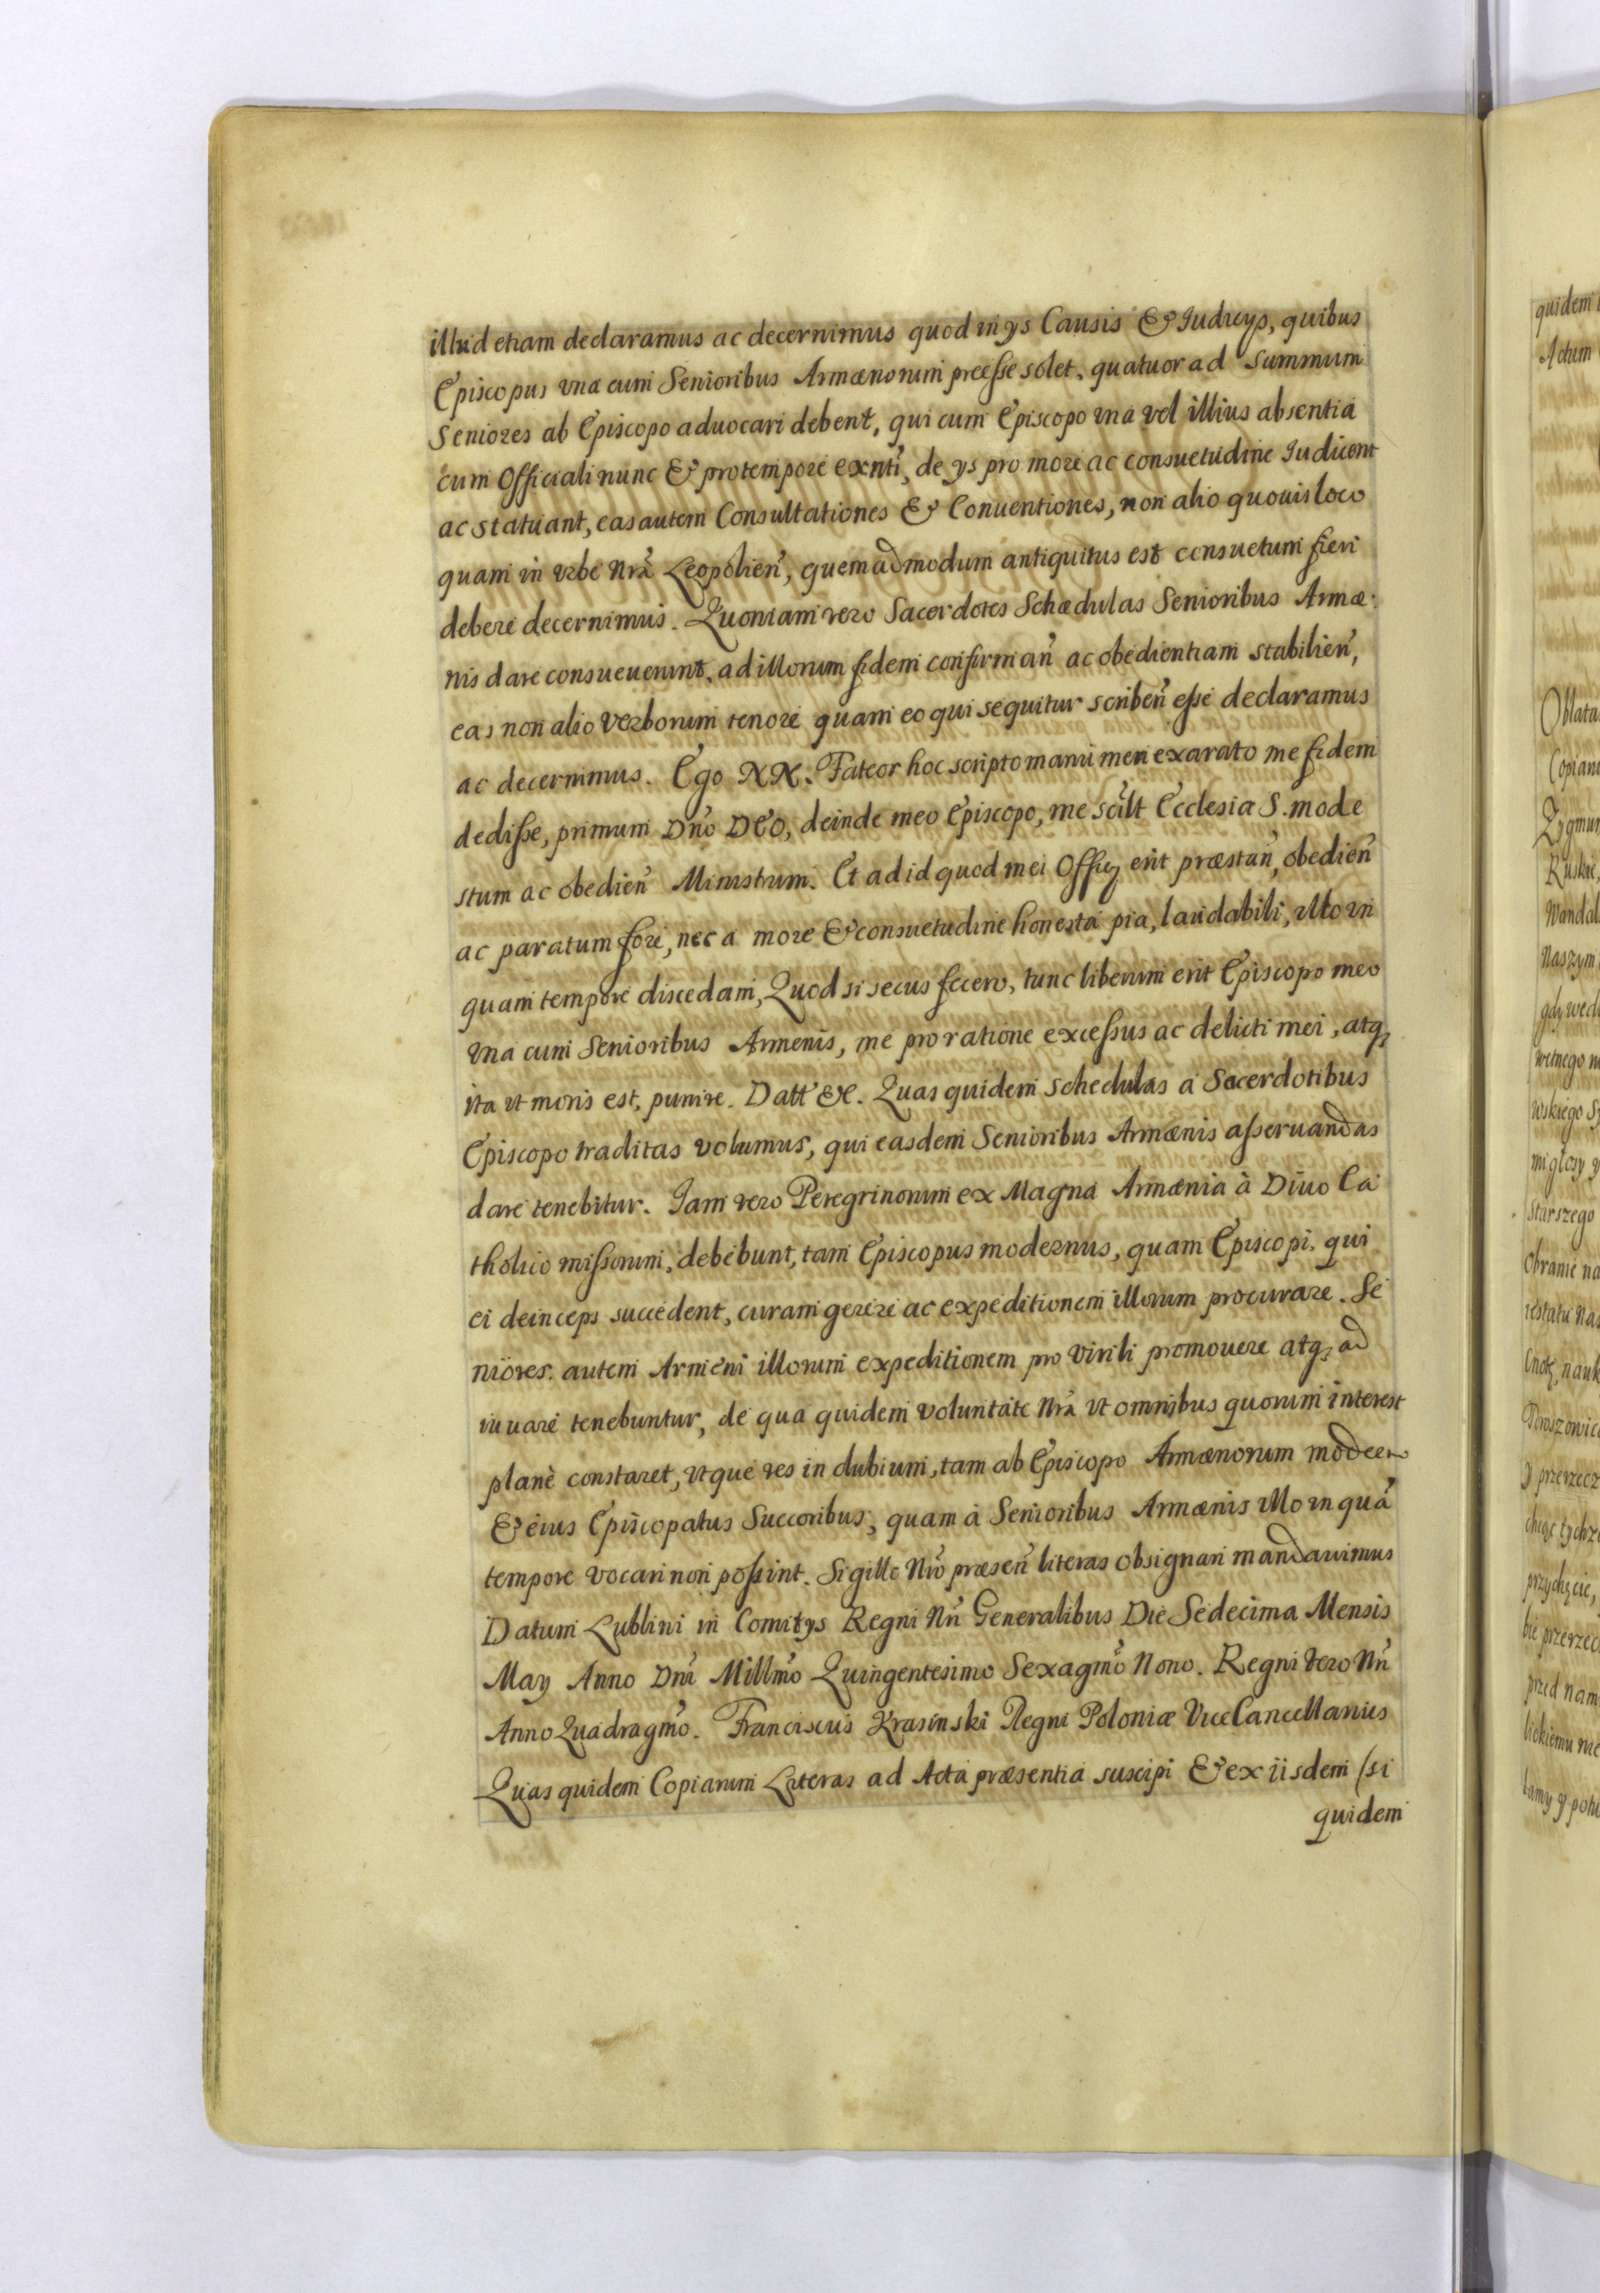 illud etiam declaramus ac decernimus quod in ijs Causis & Judicijs, quibus
Episcopus vna cum Senioribus Armænorum præesse solet, quatuor ad Summum
Seniores ab Episcopo aduocari debent, qui cum Episcopo vna vel illius absentia
cum Officiali nunc & protempore exnti, de ijs pro more ac consuetudine Iudicent
ac statuant, eas autem Consultationes & Conuentiones, non alio quouis loco
quam in vrbe nrã Leopolien, quemadmodum antiquitus est consuetum fieri
debere decernimus. Quoniam vero Sacerdotes Schædulas Senioribus Armæ
nis dare consueuerunt, ad illorum fidem confirman ac obedientiam stabilien,
eas non alio verborum tenore quam eo qui sequitur scriben esse declaramus
ac decernimus. Ego NN. Fateor hoc scripto manu mea exarato me fidem
dedisse, primum Dno DEO, deinde meo Episcopo, me scilt Ecclesiæ S. mode
stum ac obedien Ministrum. Et ad id quod mei Officij erit præstan, obedien
ac paratum fore, nec a more & consuetudine honesta pia, laudabili, vllo vn
quam tempore discedam, Quod si secus fecero, tunc liberum erit Episcopo meo
vna cum Senioribus Armenis, me pro ratione excessus ac delicti mei, atq3
ita vt moris est, punire. Datt &c. Quas quidem schedulas a Sacerdotibus
Episcopo traditas volumus, qui easdem Senioribus Armænis asseruandas
dare tenebitur. Jam vero Peregrinorum ex Magna Armænia à Diuo Ca
tholico missorum, debebunt, tam Episcopus modernus, quam Episcopi, qui
ei deinceps succedent, curam gerere ac expeditionem illorum procurare. Se
niores autem Armeni illorum expeditionem pro virili promouere atq3 ad
iuuare tenebuntur, de qua quidem voluntate nrã vt omnibus quorum interest
planè constaret, vtque res in dubium, tam ab Episcopo Armænorum modern
& eius Episcopatus Succoribus, quam à Senioribus Armænis vllo vnquã
tempore vocari non possint. Sigillo nro præsen literas obsignari mandauimus
Datum Lublini in Comitijs Regni nri Generalibus Die Sedecima Mensis
May Anno Dni Millmo Quingentesimo Sexagmo Nono. Regni vero nri
Anno Quadragmo. Franciscus Krasinski Regni Poloniæ ViceCancellarius
Quas quidem Copiarum Literas ad Acta præsentia suscipi & ex iisdem (si
quidem